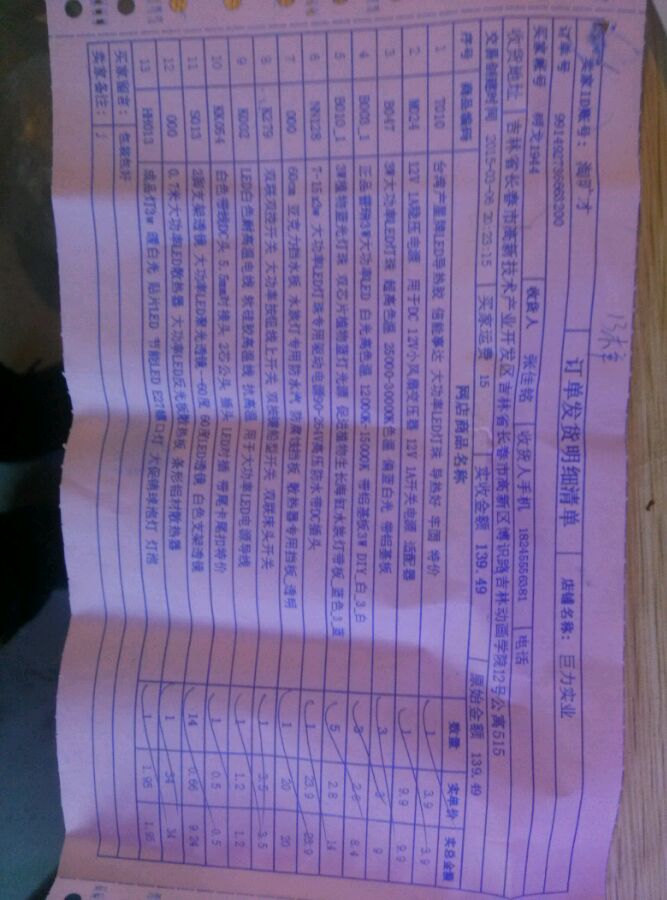 13样
卖家ID账号：
订单发货明细清单
店铺名称： 巨力实业
订单号
买家账号
收货人 张佳铭
收货人手机
电话
收货地址 吉林省长春市高新技术产业开发区吉林省长春市高新区博识路吉林动画学院12号公寓515
交易创建时间 2015-03-06 20:23:15 买家运费 15 实收金额 139.49 原始金额 139.49
序号 商品编码 网店商品名称 数量 实单价 实总金额
1 T010 台湾产星牌LED导热胶 信能事达 大功率LED灯珠 导热好 牢固 特价 1 3.9 3.9
2 MD24 12V 1A稳压电源 用于DC 12V小风扇变压器 12V 1A开关电源 适配器 1 9.9 9.9
3 B047 3W大功率LED灯珠 超高色温 25000-30000K色温 偏蓝白光 带铝基板 3 3 9
4 B003_1 正品普瑞3W大功率LED 白光高色温 12000K-15000K 带铝基板3W DIY_白_3_白 3 2.8 8.4
5 B010_1 3W植物蓝光灯珠 双芯片植物蓝灯光源 促进植物生长海缸水族灯带板_蓝色_3_蓝 5 2.8 14
6 NN128 大功率LED灯珠专用驱动电源90-264V高压防水带PV插头 1 23.9 23.9
7 000 60cm 亚克力挡水板 水族灯专用防水汽 防腐蚀挡板 散热器专用挡板_透明 1 20 20
8 KZ79 双联双控开关 大功率按钮线上开关 双按键船型开关 双联床头开关 1 3.5 3.5
9 KG02 LED白色耐高温电线 软硅胶高温线 抗高温 用于大功率LED电源导线 1 1.2 1.2
10 KK054 白色带线DC头 5.5mm对接头 2芯公头 插头 LED对插 带尾卡尾扣特价 1 0.5 0.5
11 S013 2脚支架透镜 大功率LED聚光透镜 -60度 60度LED透镜 白色支架透镜 14 0.66 9.24
12 000 0.7米大功率LED散热器 大功率LED反光板散热板 条形铝材散热器 1 34 34
13 HN013 成品灯3W 暖白光 贴片LED 节能LED E27螺口灯 大促销球泡灯 灯泡 1 1.95 1.95
买家留言： 包装包好
卖家备注：